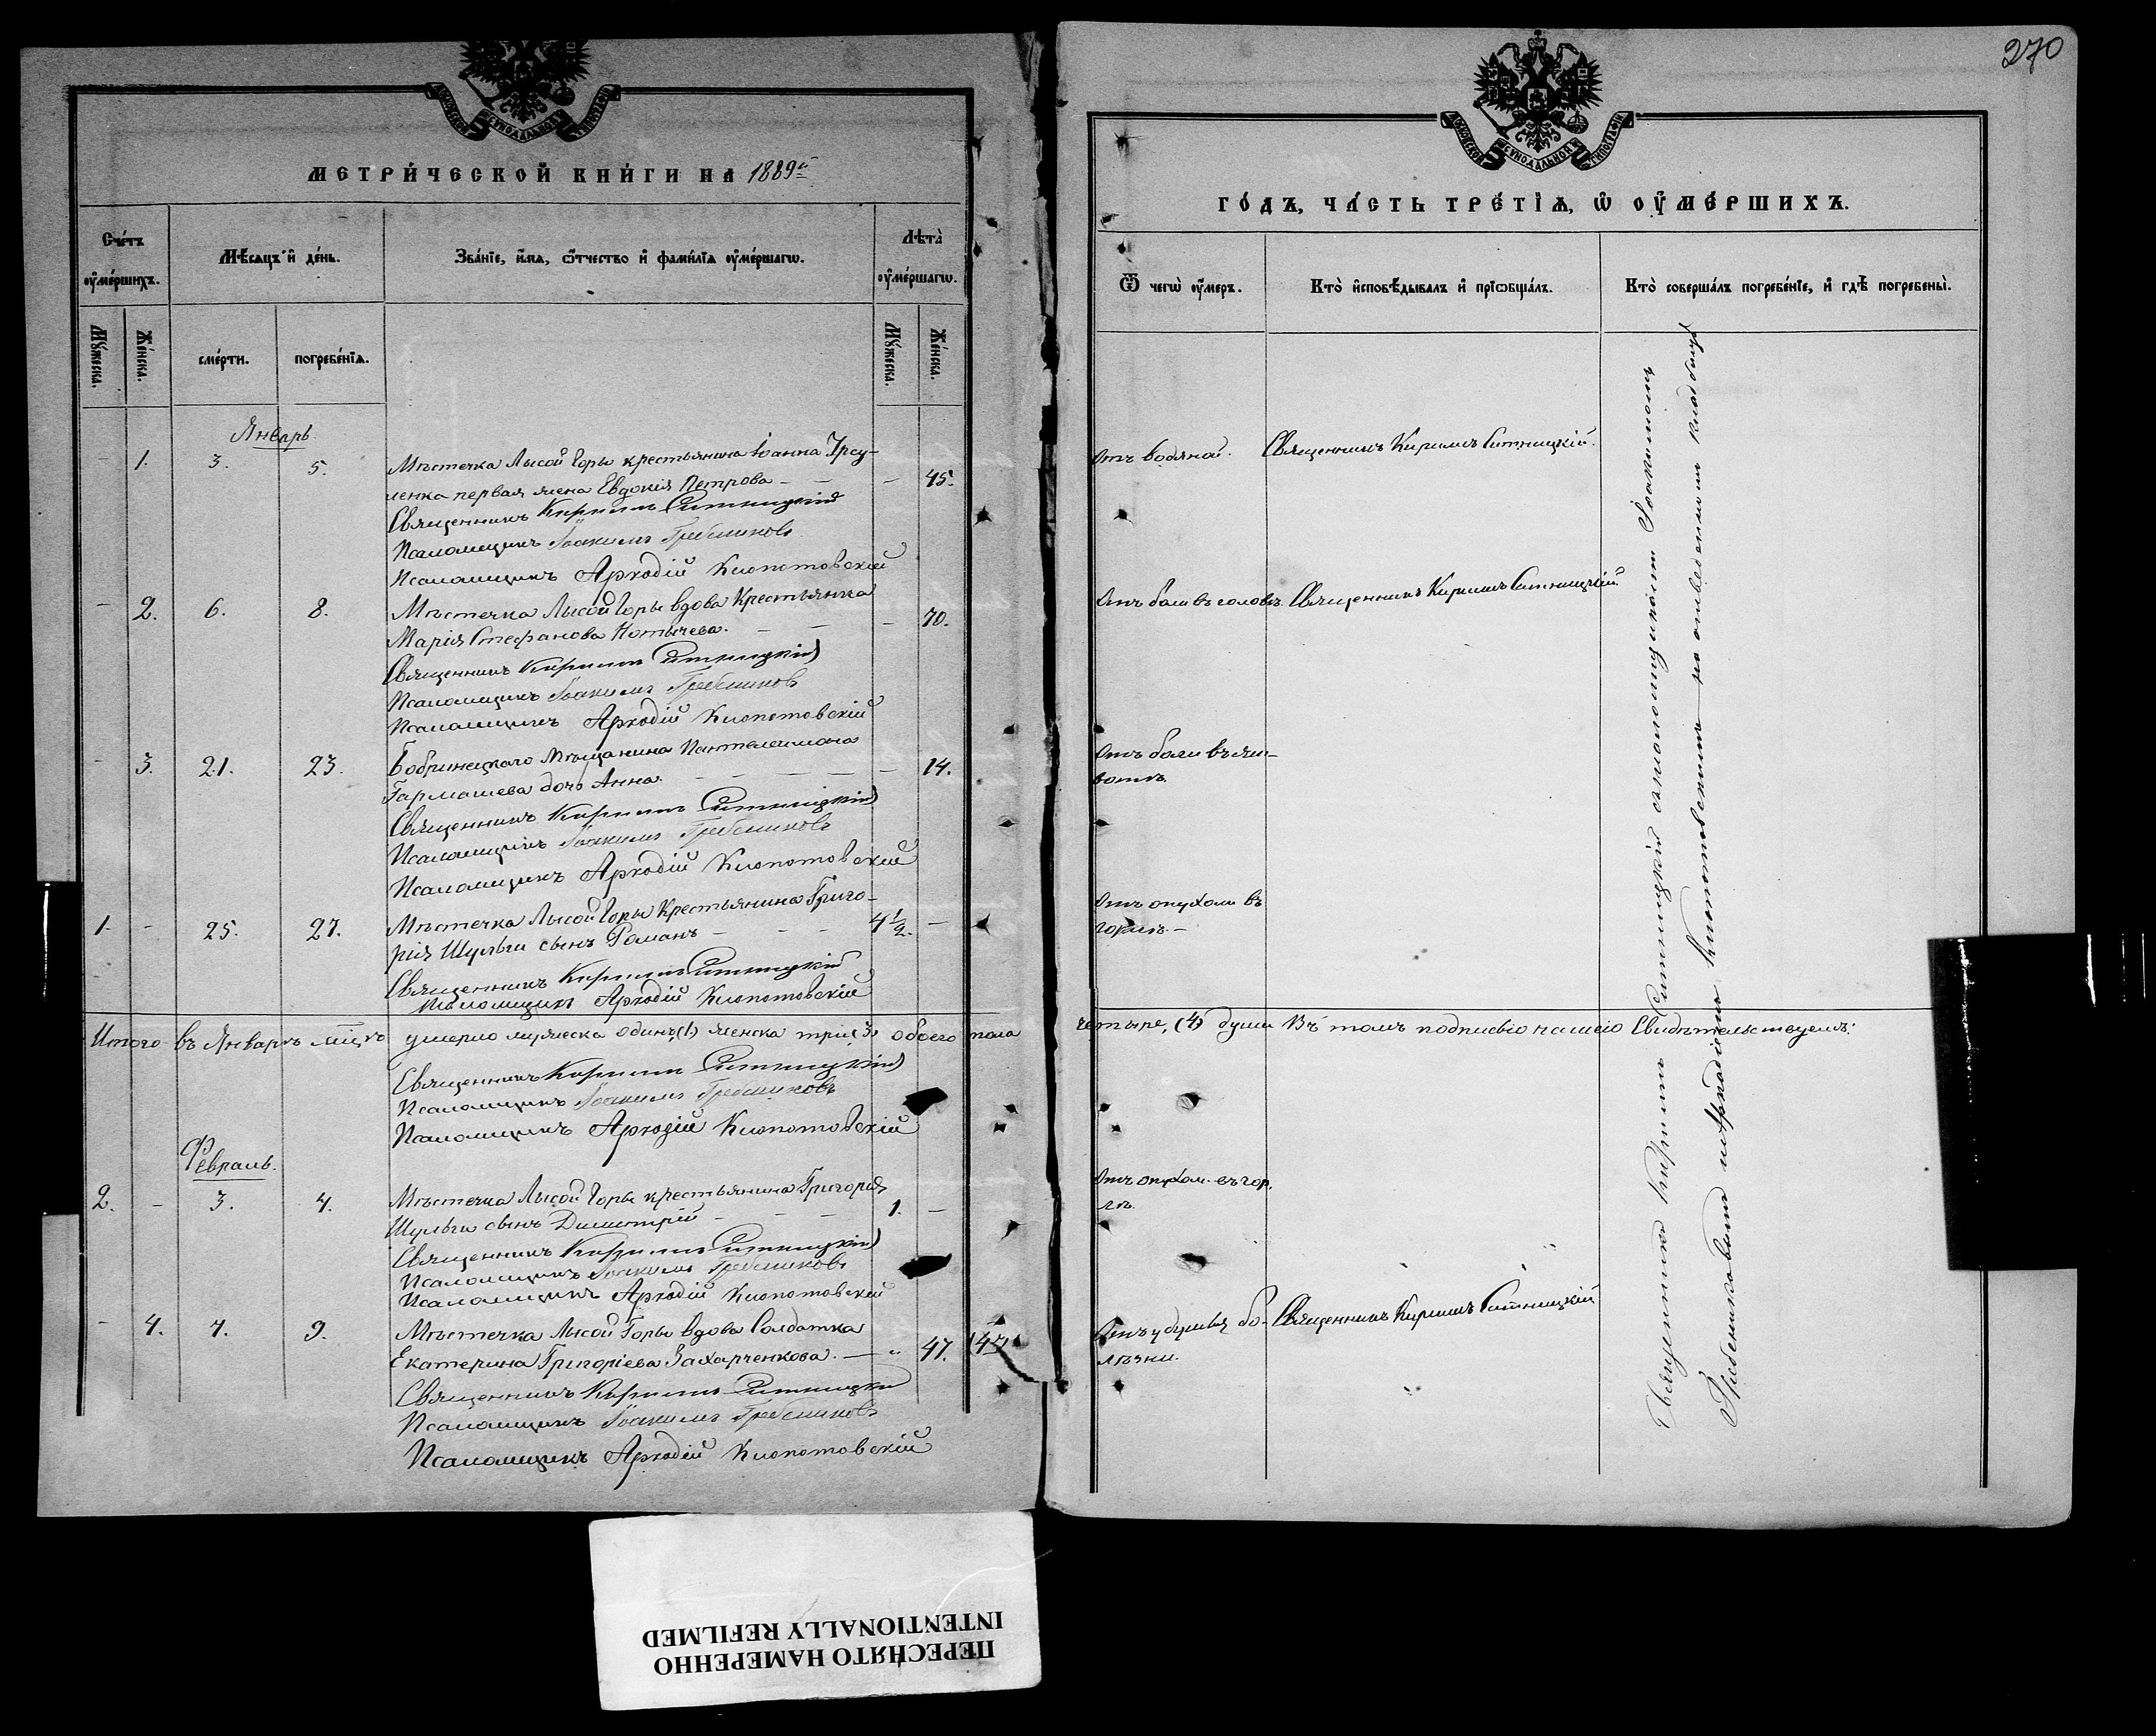 270
МОСКОВСКОЙ СУНОДАЛЬНОЙ ТИПОГРАФІИ
МЕТРИ́ЧЕСКОЙ КНИ́ГИ НА 1889й
Сче́тъ оумершихъ.
Мѣсяцъ и день.
Званіе, имя, отчество и фамилія оумершагѡ.
Лѣта оумершагѡ.
Мужеска.
Женска.
смерти.
погребенія.
Мужеска.
Женска.
Январь
- 1. 3. 5. Мѣстечка Лысой Горы крестьянина Іоанна Урсу-
ленка первая жена Евдокія Петрова - - - 45.
Священникъ Кириллъ Ситницкій
Псаломщикъ Іоакимъ Гребениковъ
Псаломщикъ Аркадій Клопотовскій
- 2. 6. 8. Мѣстечка Лысой Горы вдова Крестьянка
Марія Стефанова - - - 70.
Священникъ Кириллъ Ситницкій
Псаломщикъ Іоакимъ Гребениковъ
Псаломщикъ Аркадій Клопотовскій
- 3. 21. 23. Бобринецкаго Мѣщанина Пантелеимона
Гармашева дочь Анна. - - - - - 14.
Священникъ Кириллъ Ситницкій
Псаломщикъ Іоакимъ Гребениковъ
Псаломщикъ Аркадій Клопотовскій
1. - 25. 27. Мѣстечка Лысой Горы Крестьянина Григо-
рія Шульги сынъ Романъ - - - 4 1/2. -
Священникъ Кириллъ Ситницкій
Псаломщикъ Аркадій Клопотовскій
Итого въ Январѣ мцѣ умерло мужеска одинъ, (1) женска три, (3) обоего пола
Священникъ Кириллъ Ситницкій
Псаломщикъ Іоакимъ Гребениковъ
Псаломщикъ Аркадій Клопотовскій
Февраль.
2. - 3. 4. Мѣстечка Лысой Горы крестьянина Григорія
Шульги сынъ Димитрій - - - 1. -
Священникъ Кириллъ Ситницкій
Псаломщикъ Іоакимъ Гребениковъ
Псаломщикъ Аркадій Клопотовскій
- 4. 7. 9. Мѣстечка Лысой Горы вдова Солдатка
Екатерина Григоріева Захарченкова. - 47. (47)
Священникъ Кириллъ Ситницкій
Псаломщикъ Іоакимъ Гребениковъ
Псаломщикъ Аркадій Клопотовскій
МОСКОВСКОЙ СУНОДАЛЬНОЙ ТИПОГРАФІИ
ГО́ДЪ, ЧА́СТЬ ТРЕ́ТІѦ, Ѡ ОУМЕ́РШИХЪ.
Ѿ чегѡ оумеръ.
Кто исповѣдывалъ и пріобщалъ.
Кто совершалъ погребеніе, и гдѣ погребены.
Отъ водяной. Священникъ Кириллъ Ситницкій.
Отъ боли въ головѣ. Священникъ Кириллъ Ситницкій.
Отъ боли въ жи-
вотѣ.
Отъ опухоли въ
горлѣ. -
четыре, (4) души Въ томъ подписью нашею Свидѣтельствуемъ:
Отъ опухол. въ гор.
лѣ.
Священникъ Кириллъ Ситницкій
лѣзни.
Священникъ Кириллъ Ситницкій съ псаломщиками Іоакимомъ
Гребениковымъ и Аркадіемъ Клопотовскимъ на отведенномъ кладбищѣ
ПЕРЕСНЯТО НАМЕРЕННО
INTENTIONALLY REFILMED